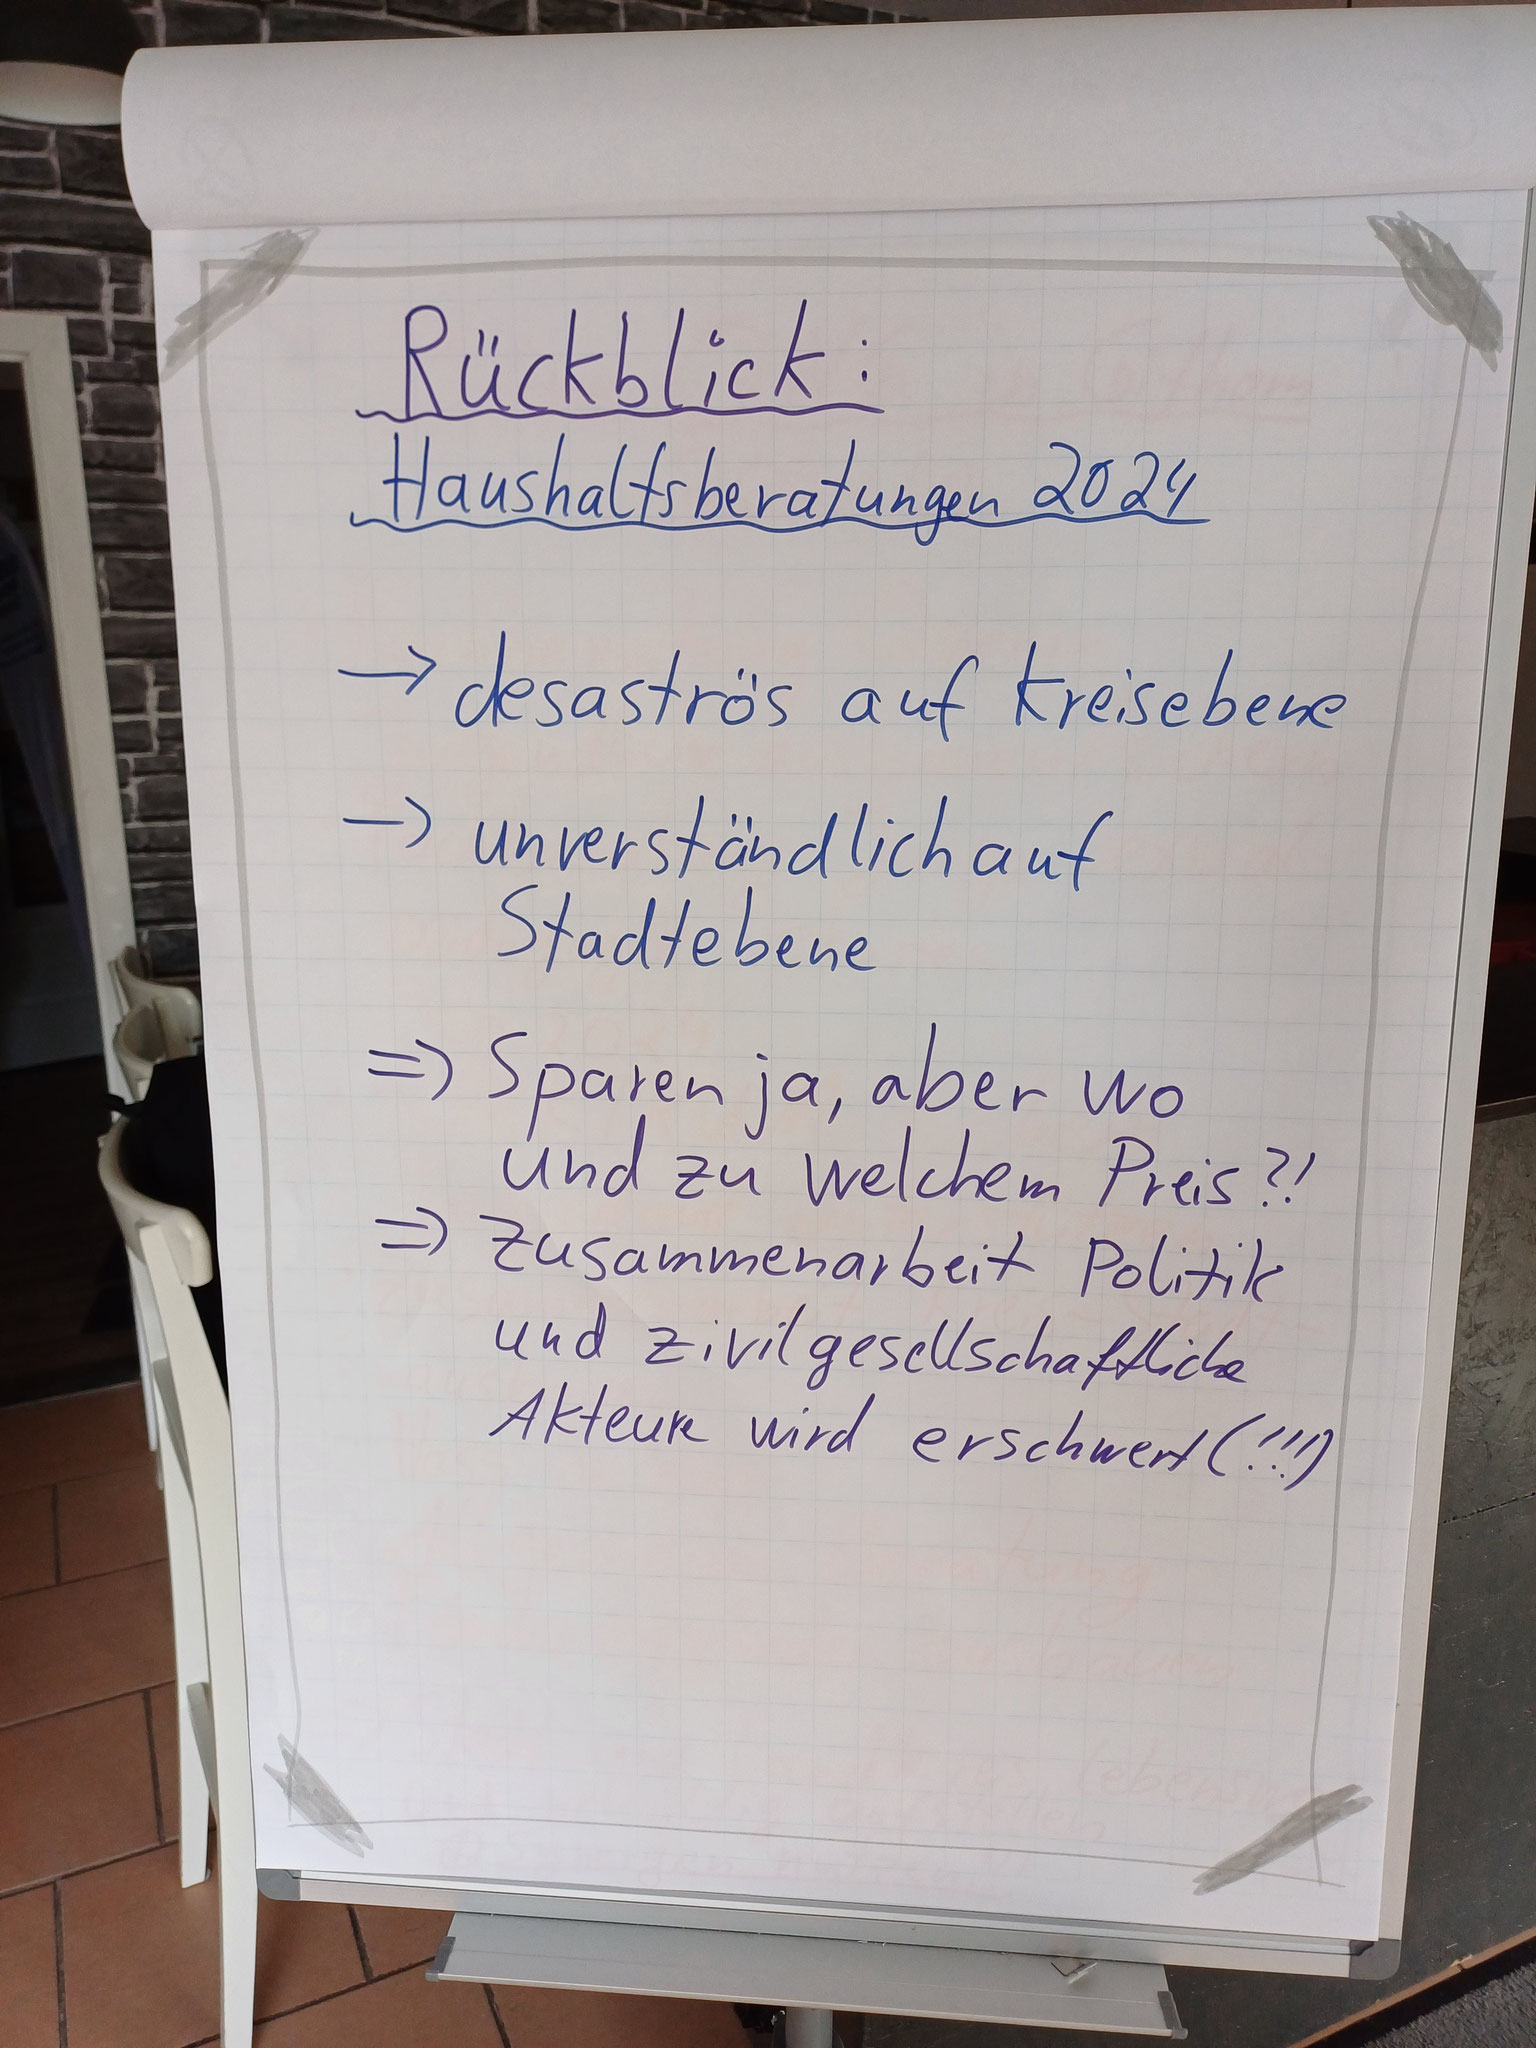 Rückblick:
Haushaltsberatungen 2024
→ desaströs auf Kreisebene
→ unverständlich auf
Stadtebene
⇒ Sparen ja, aber wo
und zu welchem Preis?!
⇒ Zusammenarbeit Politik
und zivilgesellschaftliche
Akteure wird erschwert (!!!)